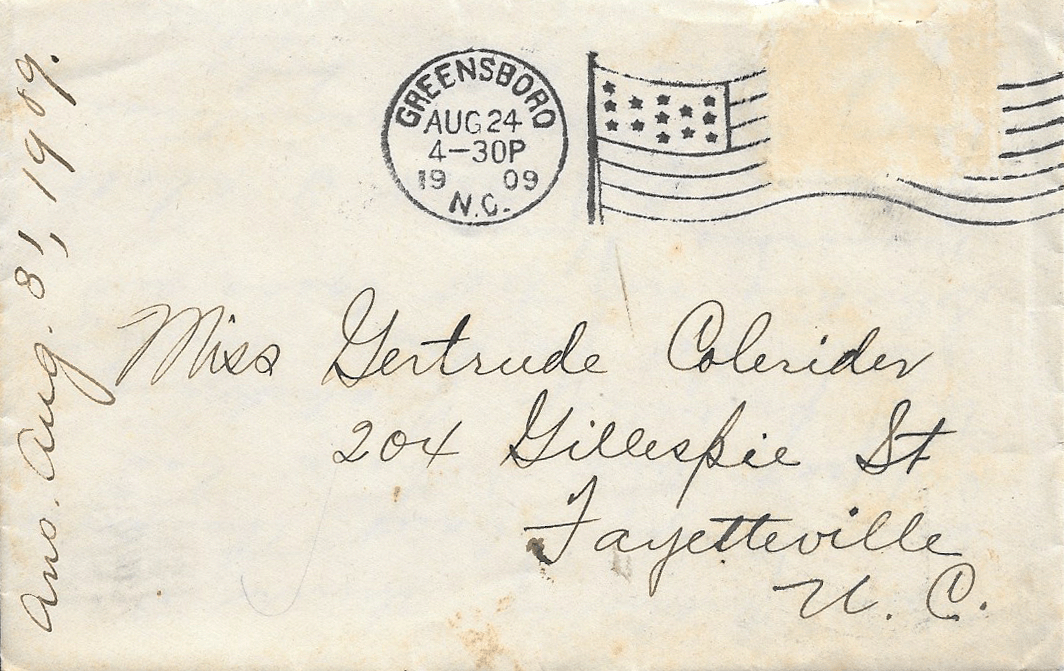 GREENSBORO
AUG 24
4-30P
19 09
N.C.
Ans. Aug. 31, 1909.
Miss Gertrude Colerider
204 Gillespie St
Fayetteville
N. C.